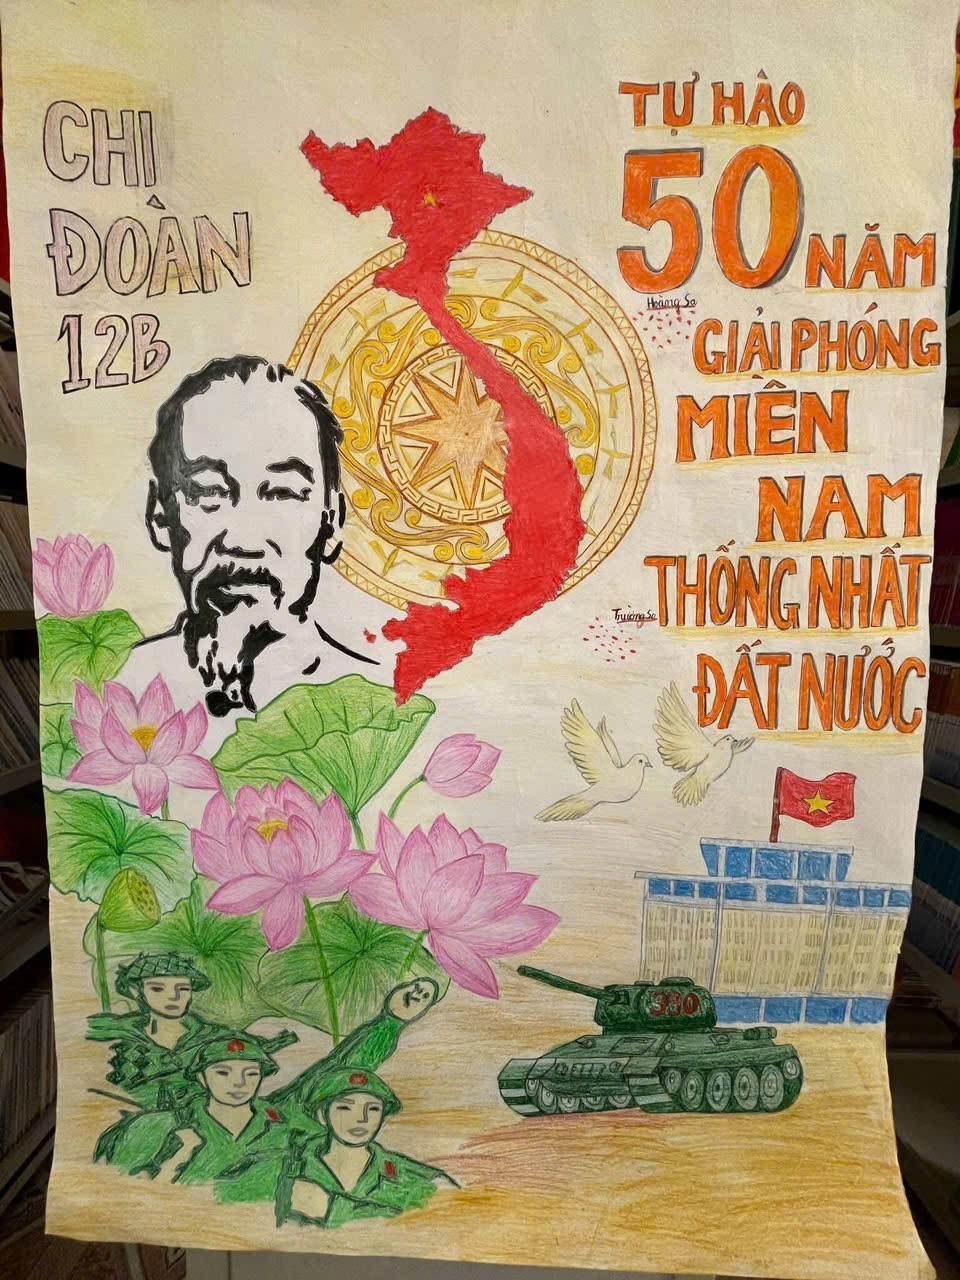 CHI
ĐOÀN
12B
TỰ HÀO
50 NĂM
Hoàng Sa
GIẢI PHÓNG
MIỀN
NAM
THỐNG NHẤT
Trường Sa
ĐẤT NƯỚC
390